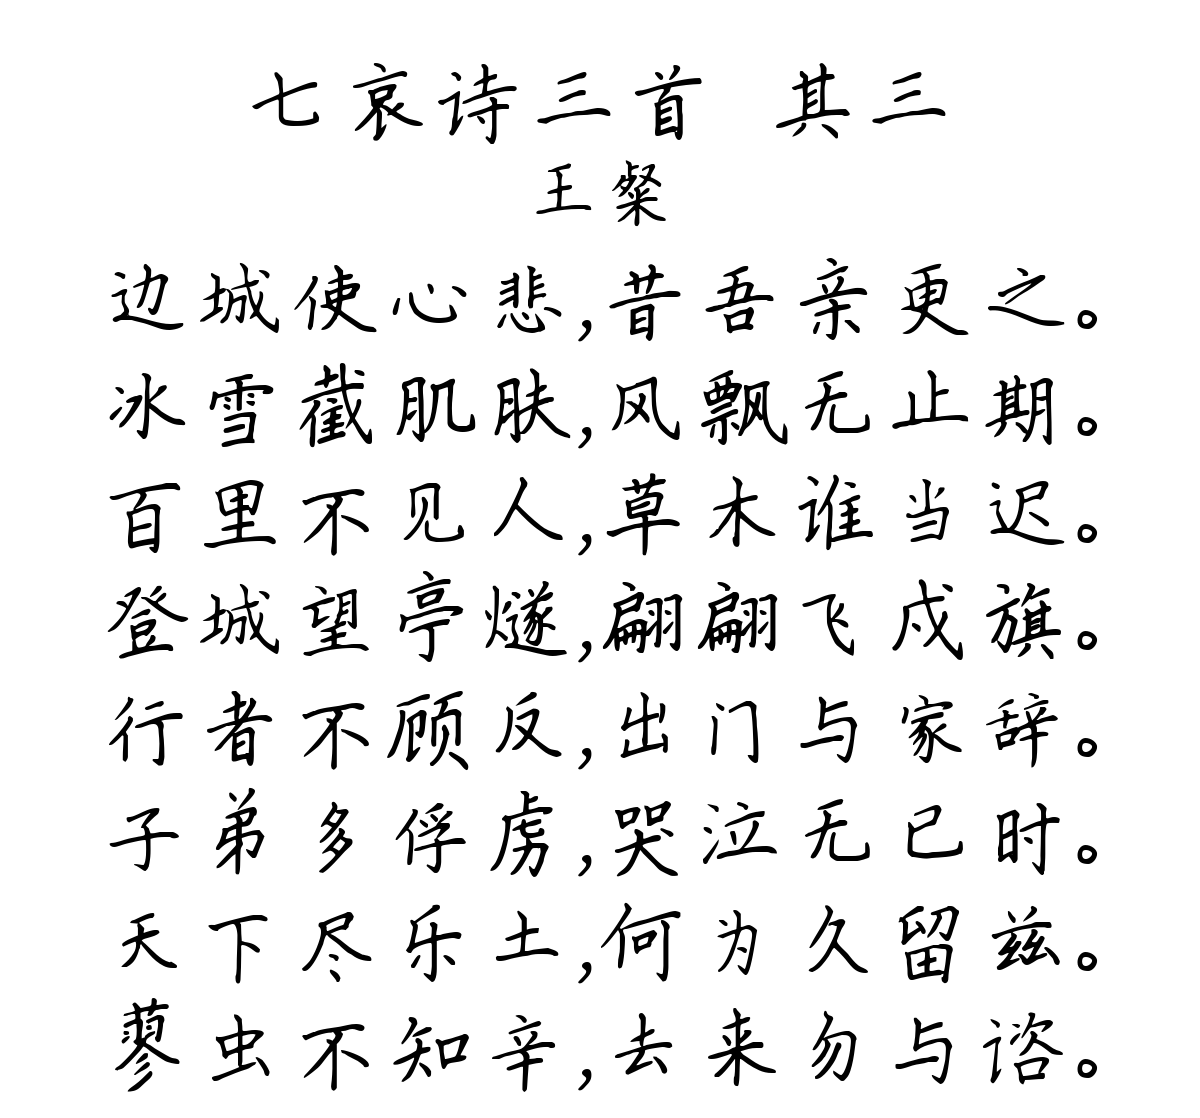 七哀诗三首 其三
王粲
边城使心悲,昔吾亲更之。
冰雪截肌肤,风飘无止期。
百里不见人,草木谁当迟。
登城望亭燧,翩翩飞戍旗。
行者不顾反,出门与家辞。
子弟多俘虏,哭泣无已时。
天下尽乐土,何为久留兹。
蓼虫不知辛,去来勿与谘。